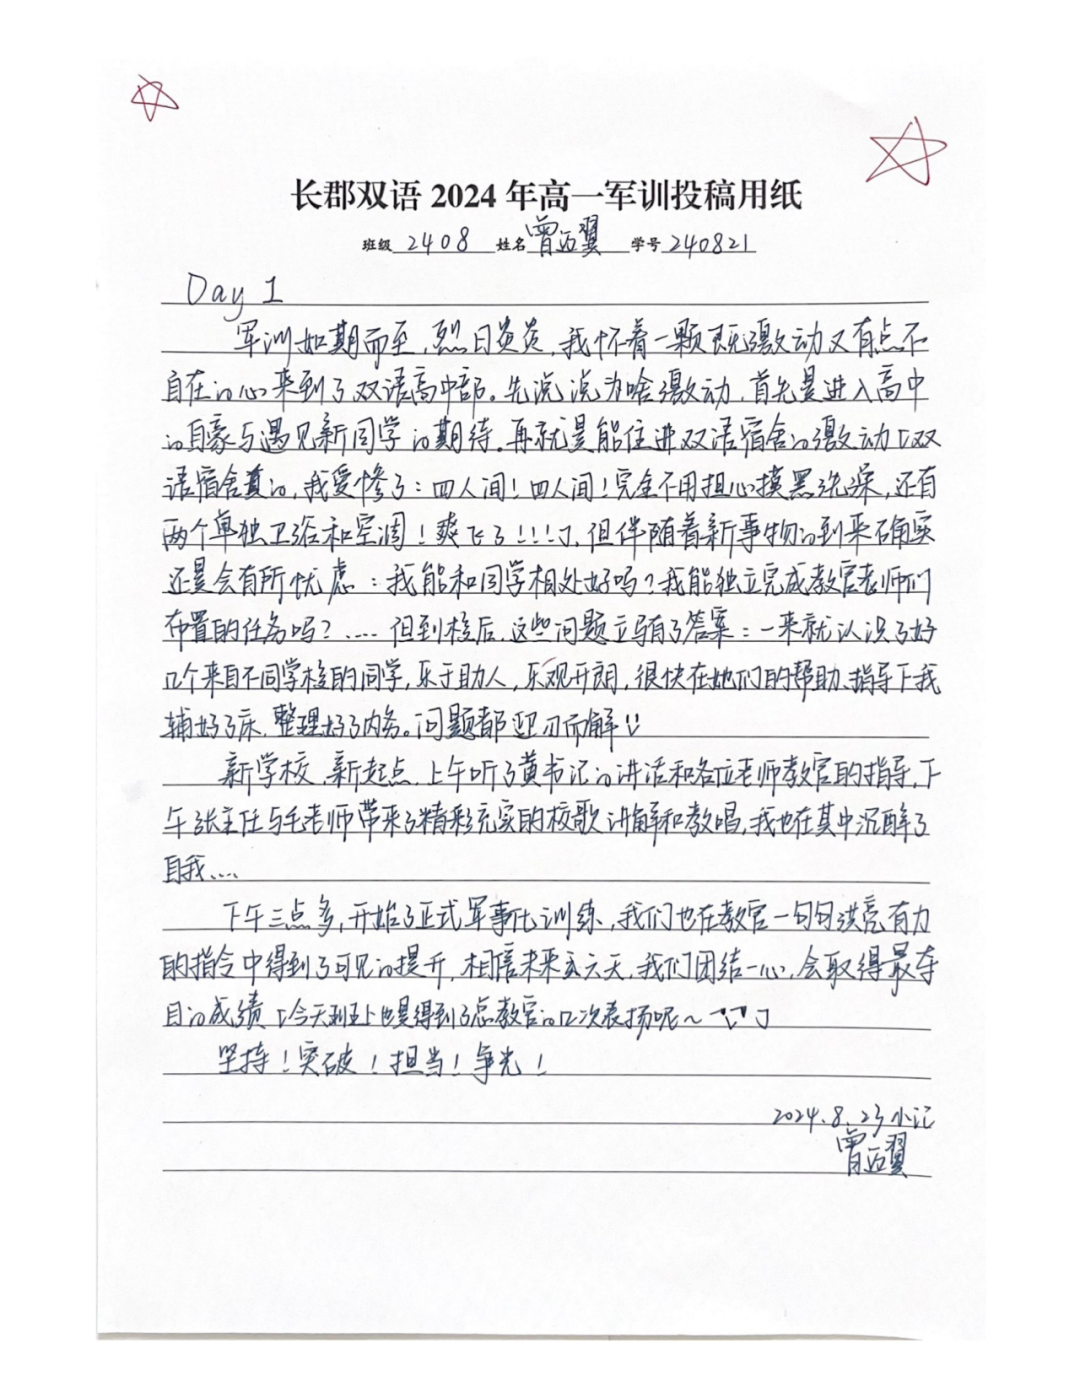 长郡双语2024年高一军训投稿用纸
班级 2408 姓名 曾 翼 学号 240821
Day 1
军训如期而至,烈日炎炎,我怀着一颗既激动又有点不
自在的心来到了双语高中部。先说说为啥激动,首先是进入高中
的自豪与遇见新同学的期待。再就是能住进双语宿舍的激动「双
语宿舍真的,我爱惨了:四人间!四人间!完全不用担心摸黑洗澡,还有
两个单独卫浴和空调!爽飞了!!!」,但伴随着新事物的到来确实
还是会有所忧虑:我能和同学相处好吗?我能独立完成教官老师们
布置的任务吗?....但到校后,这些问题立马有了答案:一来就认识了好
几个来自不同学校的同学,乐于助人,乐观开朗,很快在她们的帮助、指导下我
铺好了床,整理好了内务。问题都迎刃而解!!
新学校,新起点,上午听了黄书记的讲话和各位老师教官的指导,下
午张主任与毛老师带来了精彩充实的校歌讲解和教唱,我也在其中沉醉了
自我....
下午三点多,开始了正式军事化训练,我们也在教官一句句洪亮有力
的指令中得到了可见的提升,相信未来五六天,我们团结一心,会取得最夺
目的成绩「今天班上也是得到了总教官的几次表扬呢~」
坚持!突破!担当!争光!
2024.8.23小记
曾 翼